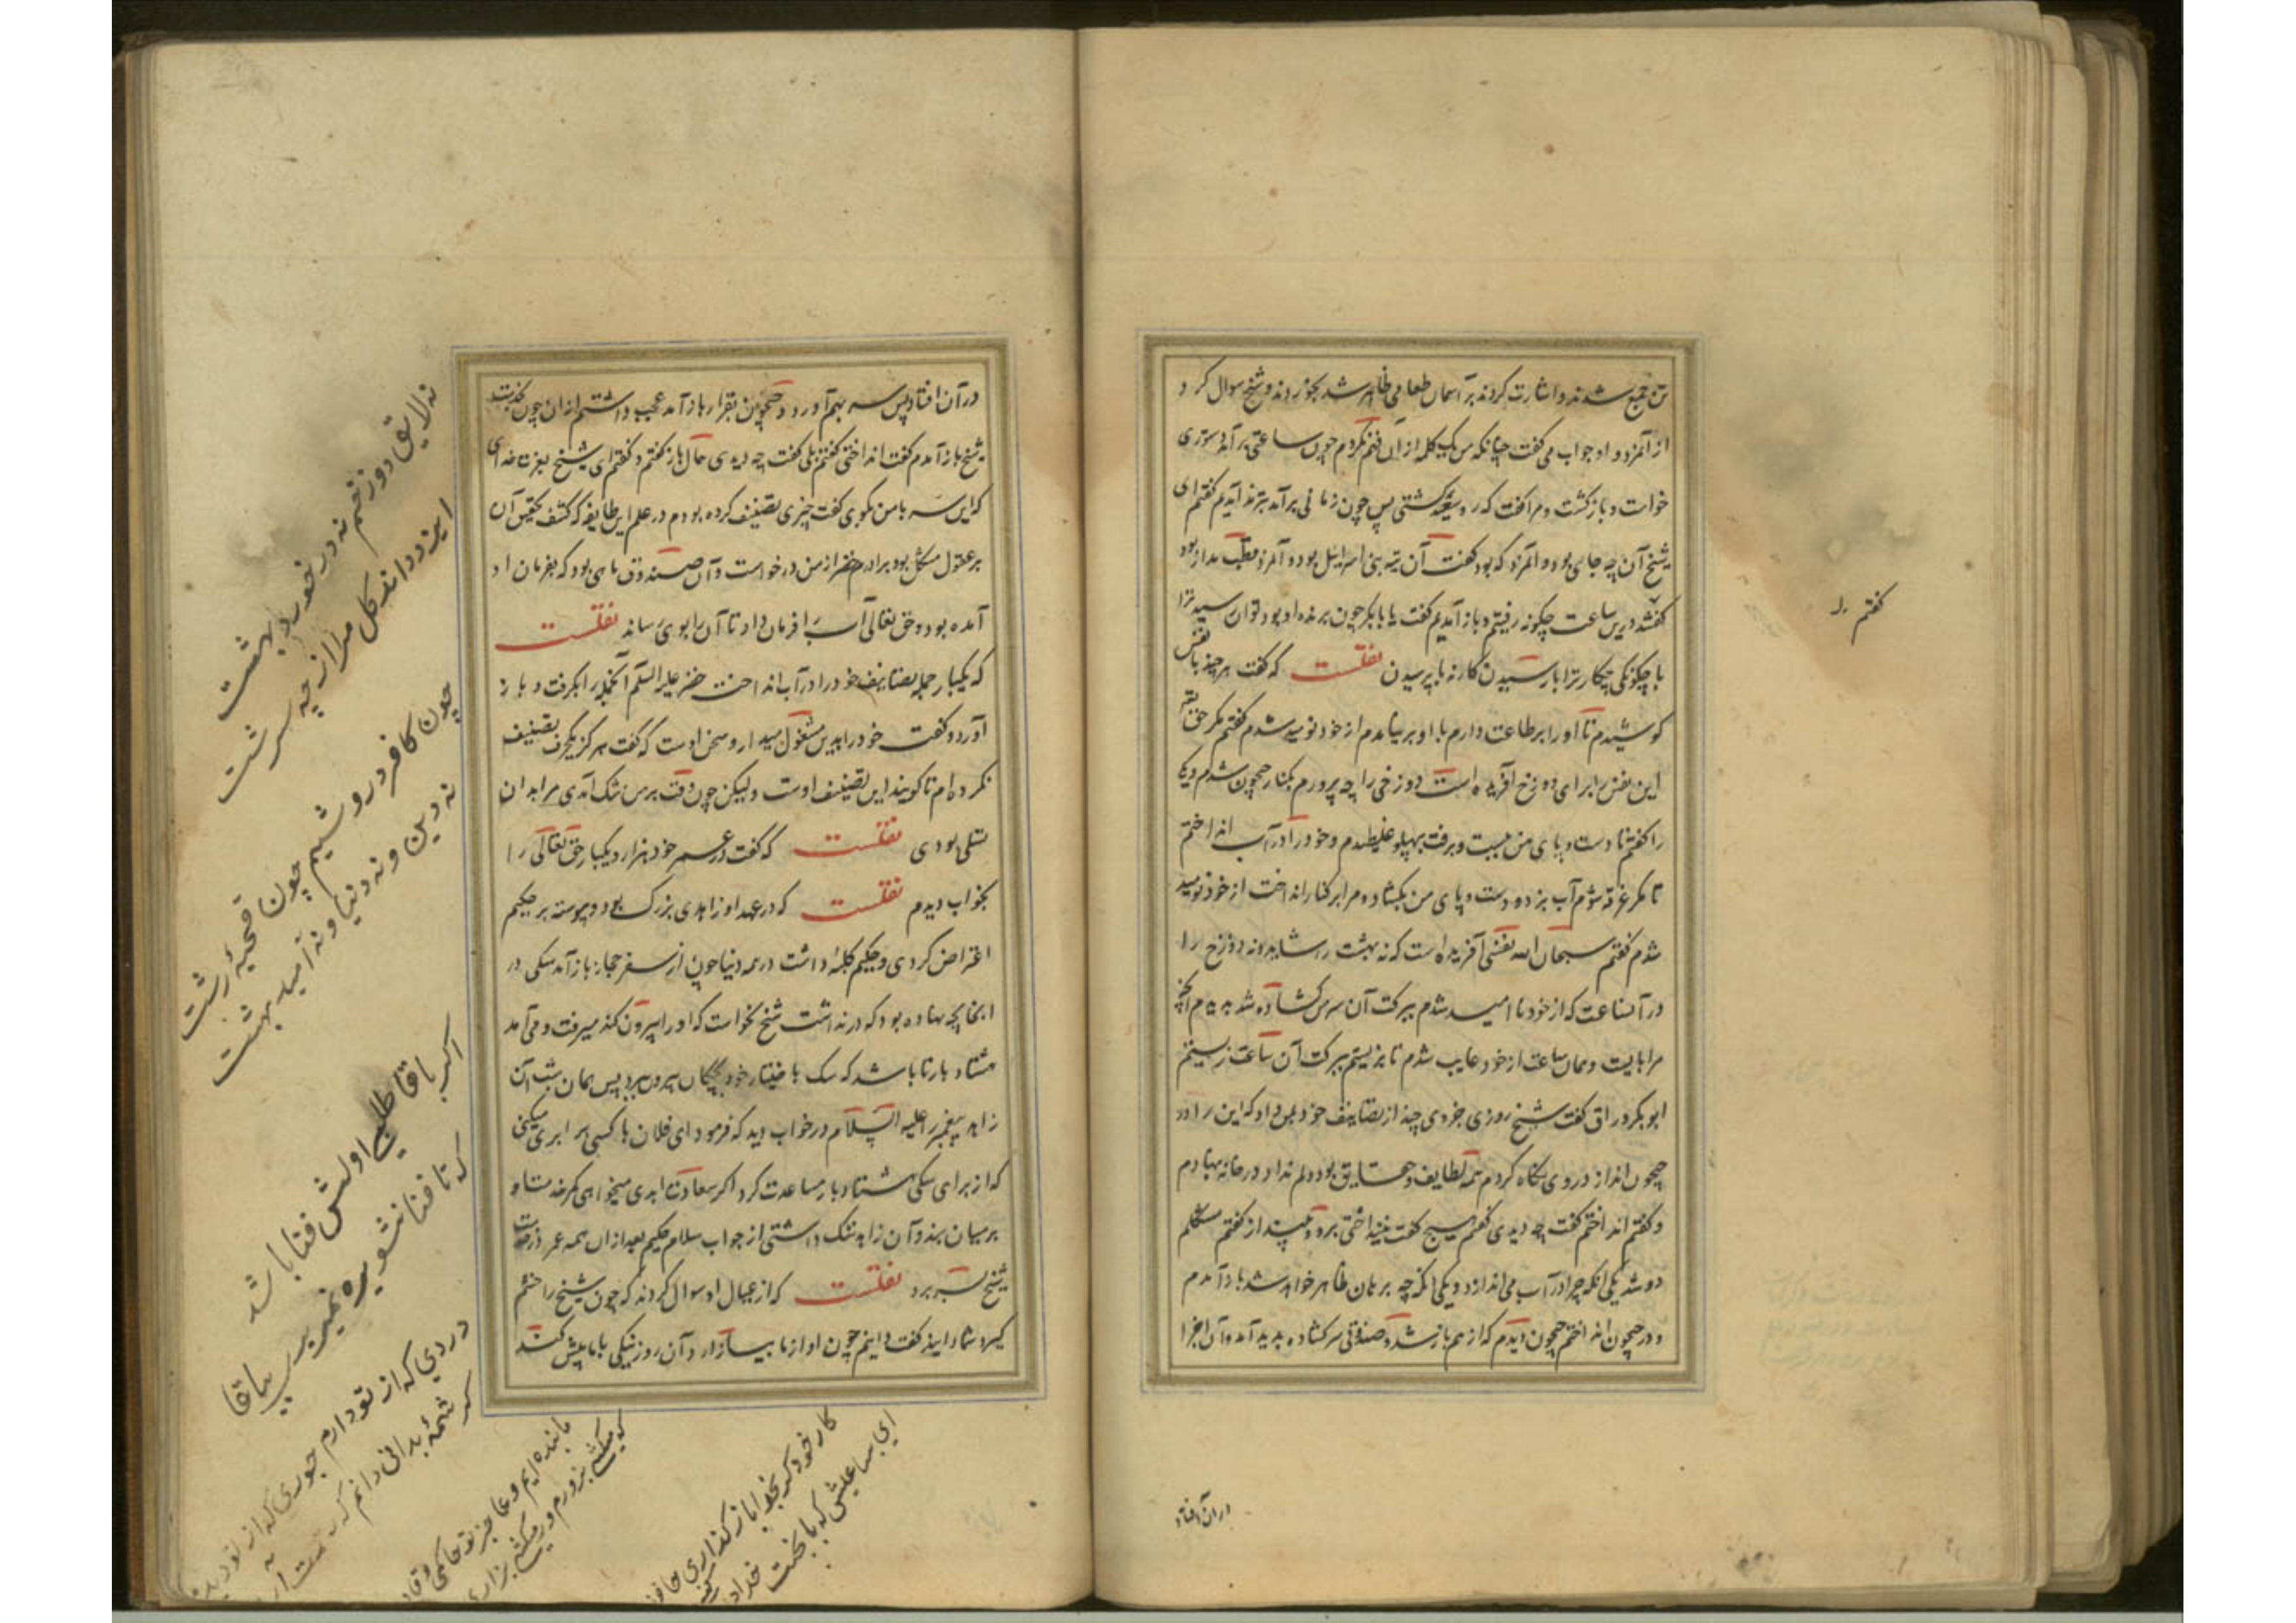 تن جمع شدند و اشارت کردند بر آسمان طعامی ظاهر شد بخوردند و شیخ سوال کرد
از آنمرد و او جواب می گفت چنانکه من یک کلمه از آن فهم نکردم چون ساعتی برآمد دستوری
خواست و بازگشت و مرا گفت که رو سعید گشتی پس چون زمانی برآمد بترمذ آمدیم گفتم ای
شیخ آن چه جای بود و آنمرد که بود گفت آن تیه بنی اسرائیل بود و آنمرد قطب مدار بود
گفتم درین ساعت چگونه رفتیم و باز آمدیم گفت یا بابکر چون برنده او بود توان رسید ترا
با چگونگی چکار ترا با رسیدن کار نه با پرسیدن نقلست که گفت هر چند با نفس
کوشیدم تا او را بر طاعت دارم با او بر نیامدم از خود نومید شدم گفتم مگر حق تعالی
این نفس را برای دوزخ آفریده است دوزخی را چه پرورم بکنار جیحون شدم و یکی
را گفتم تا دست و پای من ببست و برفت بپهلو غلطیدم و خود را در آب انداختم
تا مگر غرقه شوم آب بزد و دست و پای من بگشاد و مرا بر کنار انداخت از خود نومید
شدم گفتم سبحان الله نفسی آفریده است که نه بهشت را شاید و نه دوزخ را
در آنساعت که از خود نا امید شدم ببرکت آن سر من گشاده شد بدیدم آنچه
مرا بایست و همان ساعت از خود غایب شدم تا بزیستم ببرکت آن ساعت زیستم
ابوبکر وراق گفت شیخ روزی جزوی چند از تصانیف خود بمن داد که این را در
جیحون انداز در وی نگاه کردم همه لطایف و حقایق بود دلم نداد در خانه بنهادم
و گفتم انداختم گفت چه دیدی گفتم هیچ گفت نینداختی برو و بینداز گفتم مشکلم
دو شد یکی آنکه چرا در آب می اندازد و یکی آنکه چه برهان ظاهر خواهد شد باز آمدم
و در جیحون انداختم جیحون دیدم که از هم باز شد و صندوقی سرگشاده پدید آمد و آن اجزا
در آن افتاد
گفتم
در آن افتاد پس سر بهم آورد و جیحون بقرار باز آمد عجب داشتم از آن چون بخدمت
شیخ باز آمدم گفت انداختی گفتم بلی گفت چه دیدی حال باز گفتم و گفتم ای شیخ بعزت خدای
که این سر با من بگوی گفت چیزی تصنیف کرده بودم در علم این طایفه که کشف تحقیق آن
بر عقول مشکل بود برادرم خضر از من درخواست و آن صندوق ماهی بود که بفرمان او
آمده بود و حق تعالی آب را فرمان داد تا آن را بوی رساند نقلست
که یکبار جمله تصانیف خود را در آب انداخت خضر علیه السلام آنجمله را بگرفت و باز
آورد و گفت خود را بدین مشغول میدار و سخن اوست که گفت هرگز یکحرف تصنیف
نکرده ام تا گویند این تصنیف اوست ولیکن چون وقت بر من تنگ آمدی مرا بدان
تسلی بودی نقلست که گفت در عمر خود هزار و یکبار حق تعالی را
بخواب دیدم نقلست که در عهد او زاهدی بزرگ بود و پیوسته بر حکیم
اعتراض کردی و حکیم کلبه داشت در همه دنیا چون از سفر حجاز باز آمد سگی در
آنجا بچه نهاده بود که در نداشت شیخ نخواست که او را بیرون کند میرفت و می آمد
هشتاد بار تا باشد که سگ باختیار خود بچگان بیرون برد پس همان شب آن
زاهد پیغمبر را علیه السلام در خواب دید که فرمود ای فلان با کسی برابری میکنی
که از برای سگی هشتاد بار مساعدت کرد اگر سعادت ابدی میخواهی کمر خدمت او
بر میان بند و آن زاهد ننگ داشتی از جواب سلام حکیم بعد از آن همه عمر در خدمت
شیخ بسر برد نقلست که از عیال او سوال کردند که چون شیخ را خشم
گیرد شما را بیند گفت دانیم چون او از ما بیازارد آن روز نیکی با ما بیش کند
نه لایق دوزخم نه در خورد بهشت
ایزد داند گل مرا از چه سرشت
چون کافر درویشم چون قحبه زشت
نه دین و نه دنیا و نه امید بهشت
اکر باقا طلبی اولش فنا باشد
که تا فنا نشوی ره نمیبری ببقا
دردی که از تو دارم جوری که از تو دیدم
کر شمهٔ بدانی دانم که
ما بنده ایم و عاجز تو حاکمی و قادر
کر میکشی بزورم ور میکشی بزاری
کار خود کر بخدا باز گذاری حافظ
ای بسا عیش که با بخت خداداده کنی